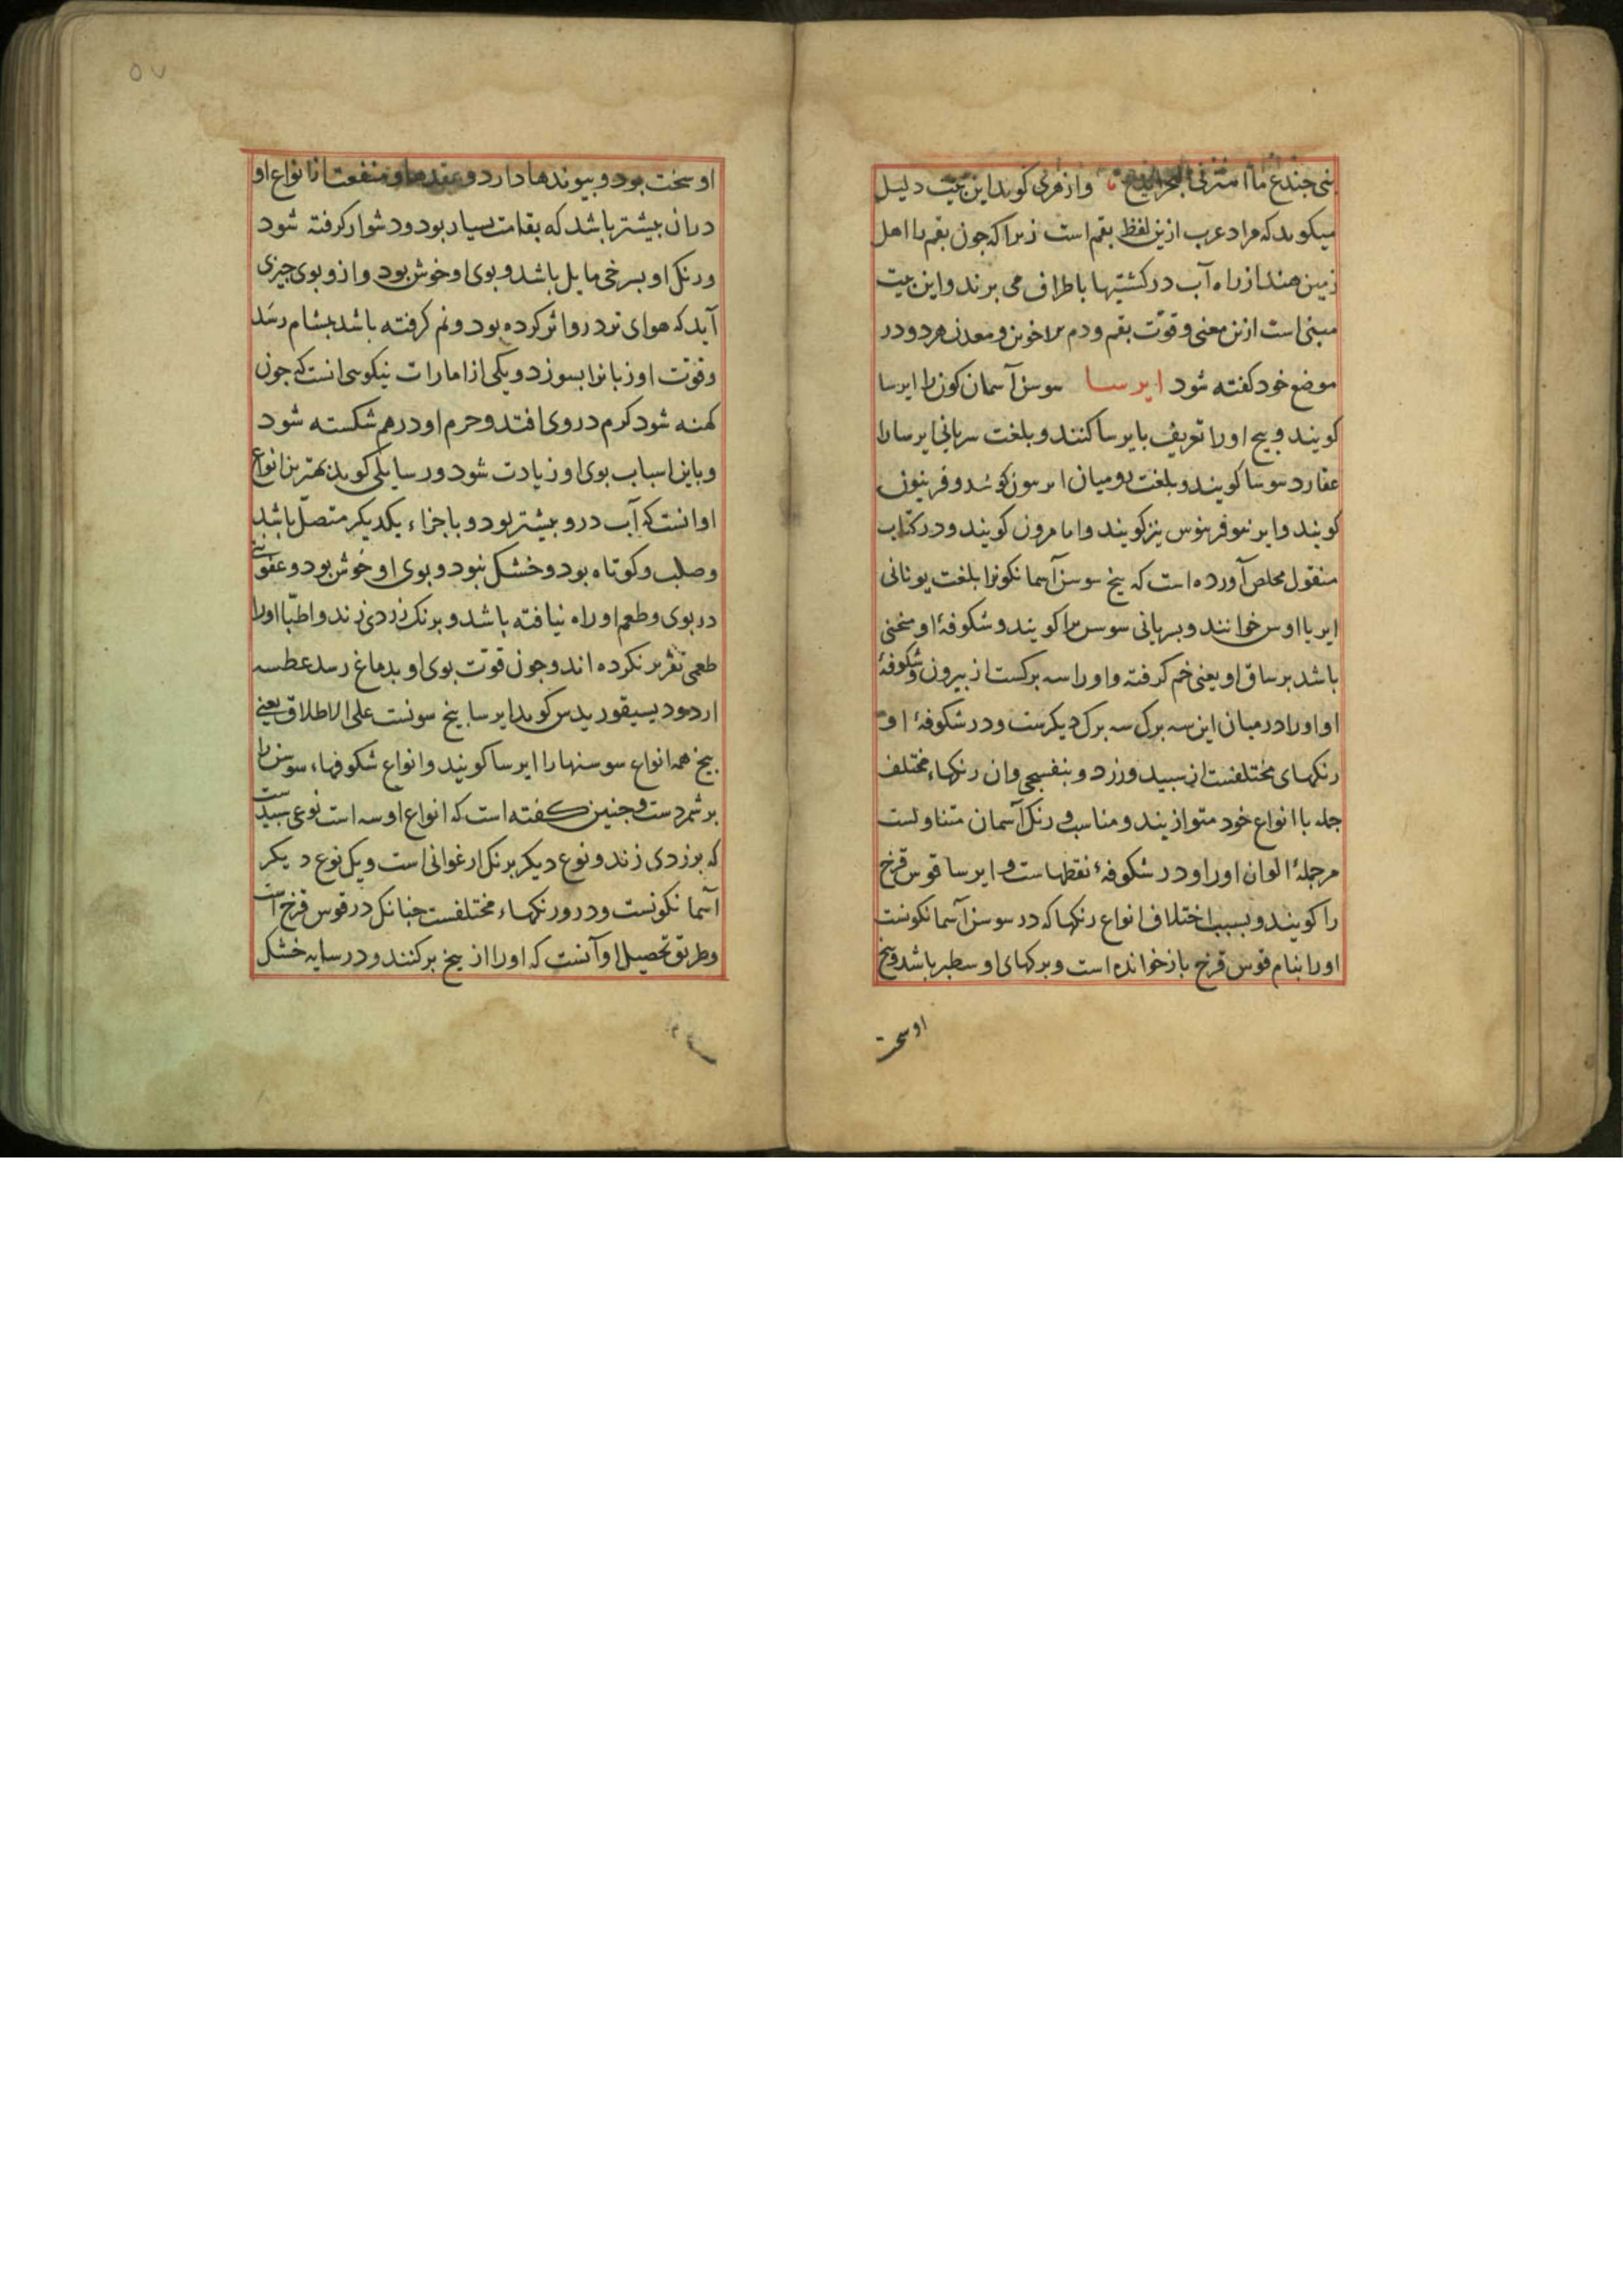 وازهری کوید این بیت دلیل
میکوید که مراد عرب ازین لفظ بقم است زیرا که جون بقم را اهل
زمین هند از راه آب در کشتیها باطراف می برند و این بیت
مبنی است ازین معنی و قوّت بقم و دم الاخوین و معدن هر دو در
موضع خود کفته شود ایرسا سوسن آسمان کون را ایرسا
کویند و بیخ او را تعریف بایرسا کنند و بلغت سریانی ایرسا را
عقارد سوسا کویند و بلغت رومیان
کویند و نیز کویند و کویند و در کتاب
منقول مخلص آورده است که بیخ سوسن آسمانکونرا بلغت یونانی
ایریااوس خوانند و بسریانی کویند و شکوفهٔ او منحنی
باشد بر ساق او یعنی خم کرفته و او را سه برکست از بیرون شکوفهٔ
او و او را در میان این سه برک سه برک دیکرست و در شکوفهٔ او
رنکهای مختلفست از سبید و زرد و بنفسجی و ان رنکهاء مختلف
جمله با انواع خود متوازیند و مناسب و رنک آسمان متناولست
مر جملهٔ الوان او را و در شکوفهٔ نقطهاست و ایرسا قوس قزح
را کویند و بسبب اختلاف انواع رنکها که در سوسن آسمانکونست
او را بنام قوس قزح باز خوانده است و برکهای او سطبر باشد و بیخ
او سخت
او سخت بود و بیوندها دارد و عقدها و منفعت از انواع او
دران بیشتر باشد که بقامت بسیار بود و دشوار کرفته شود
ورنک او بسرخی مایل باشد و بوی او خوش بود و ازو بوی جیزی
آید که هوای تر درو اثر کرده بود و نم کرفته باشد بمشام رسد
و قوت او زبانرا بسوزد و یکی از امارات نیکویی انست که جون
کهنه شود کرم در وی افتد و جرم او درهم شکسته شود
و باین اسباب بوی او زیادت شود و رسایلی کوید بهترین انواع
او انست که آب درو بیشتر بود و باجزاء یکدیکر متصل باشد
و صلب و کوتاه بود و خشک نبود و بوی او خوش بود و عفونتی
در بوی و طعم او راه نیافته باشد و برنک زردی زند و اطبّا او را
طعمی تقریر نکرده اند و جون قوّت بوی او بدماغ رسد عطسه
ارد و دیسیقوریدس کوید ایرسا بیخ سوسنست علی الاطلاق یعنی
بیخ همه انواع سوسنها را ایرسا کویند و انواع شکوفهاء سوسن را
بر شمردست و جنین کفته است که انواع او سه است نوعی سبیدست
که بزردی زند و نوع دیکر برنک ارغوانی است و یک نوع دیکر
آسمانکونست و درو رنکهاء مختلفست جنانک در قوس قزح است
و طریق تحصیل او آنست که او را از بیخ برکنند و در سایه خشک